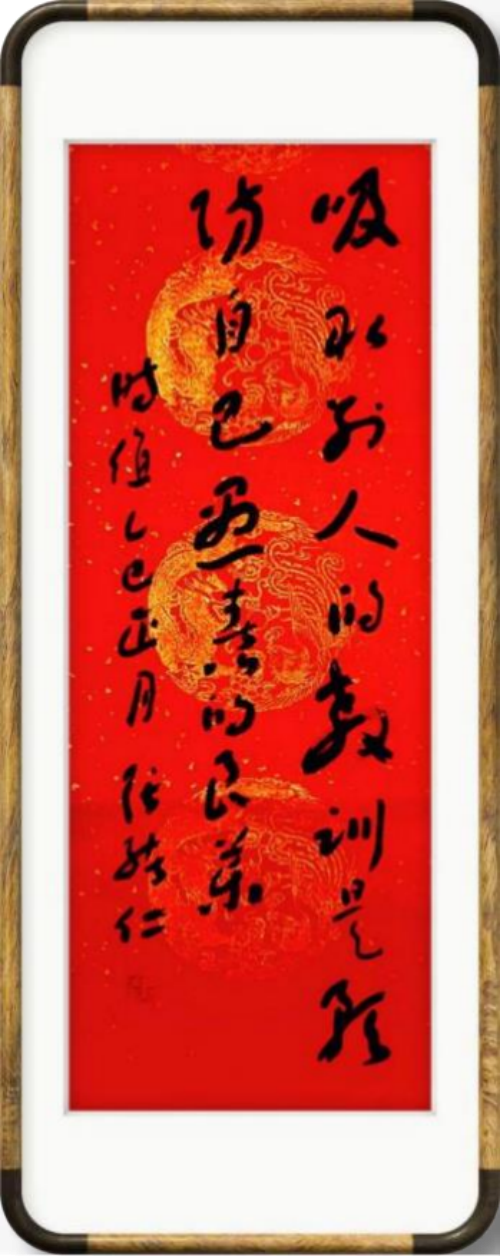 吸取别人的教训是预
防自己愚蠢的良药
时值乙巳正月 张仁